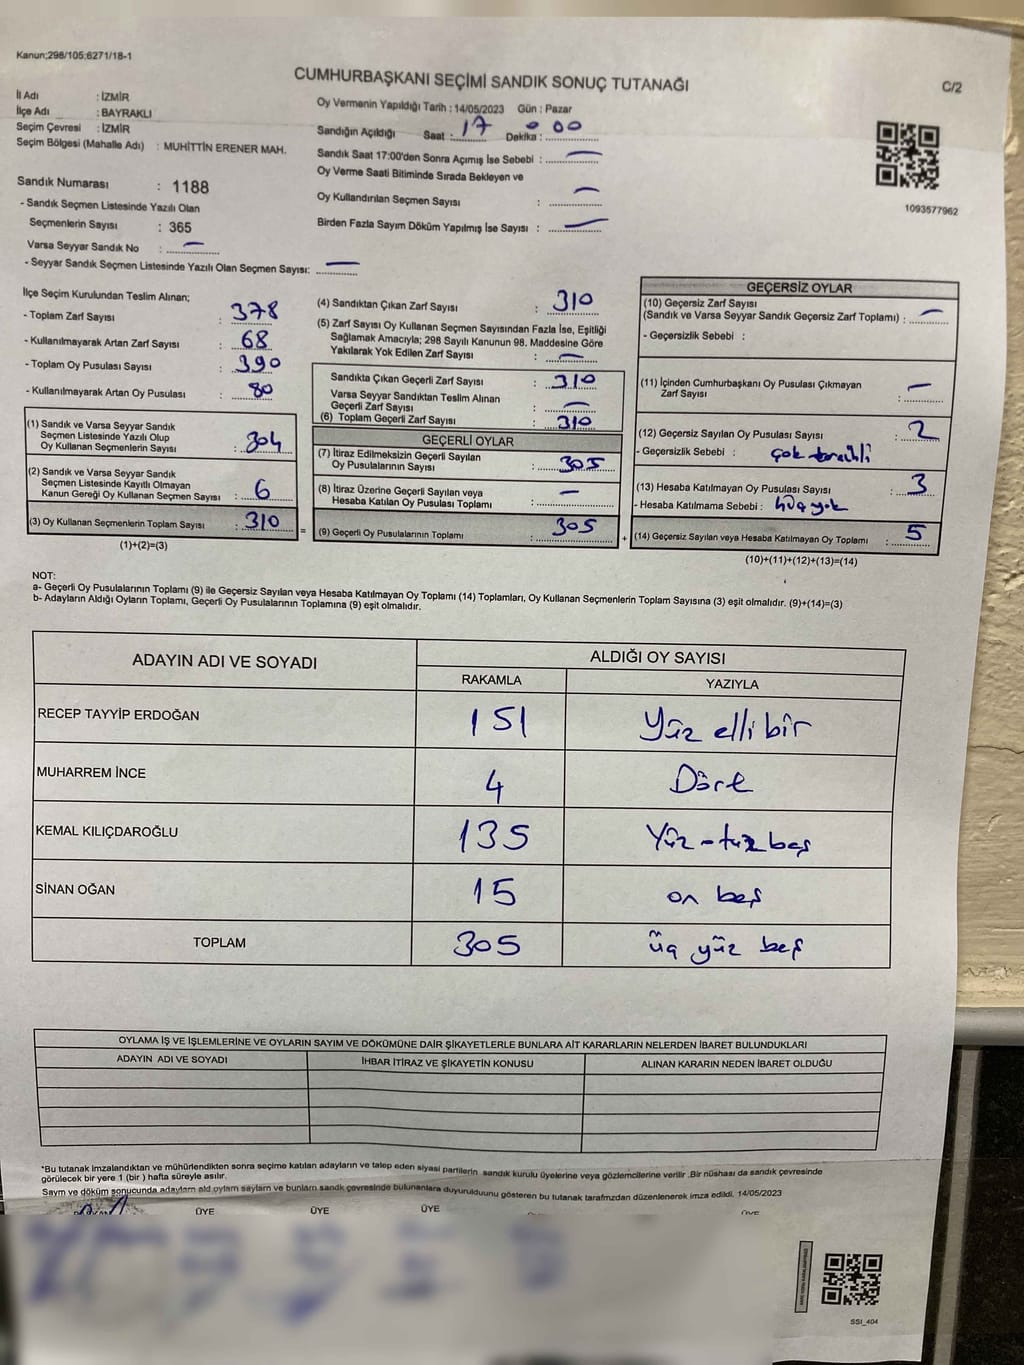 Kanun;298/105;6271/18-1
CUMHURBAŞKANI SEÇİMİ SANDIK SONUÇ TUTANAĞI
C/2
İl Adı : İZMİR
İlçe Adı : BAYRAKLI
Seçim Çevresi : İZMİR
Seçim Bölgesi (Mahalle Adı) : MUHİTTİN ERENER MAH.
Oy Vermenin Yapıldığı Tarih : 14/05/2023 Gün : Pazar
Sandığın Açıldığı Saat : 17 Dekika : 00
Sandık Saat 17:00'den Sonra Açımış İse Sebebi : —
Oy Verme Saati Bitiminde Sırada Bekleyen ve
Oy Kullandırılan Seçmen Sayısı : —
Birden Fazla Sayım Döküm Yapılmış İse Sayısı : —
1093577962
Sandık Numarası : 1188
- Sandık Seçmen Listesinde Yazılı Olan
Seçmenlerin Sayısı : 365
Varsa Seyyar Sandık No : —
- Seyyar Sandık Seçmen Listesinde Yazılı Olan Seçmen Sayısı: —
İlçe Seçim Kurulundan Teslim Alınan;
- Toplam Zarf Sayısı : 378
- Kullanılmayarak Artan Zarf Sayısı : 68
- Toplam Oy Pusulası Sayısı : 390
- Kullanılmayarak Artan Oy Pusulası : 80
(1) Sandık ve Varsa Seyyar Sandık
Seçmen Listesinde Yazılı Olup
Oy Kullanan Seçmenlerin Sayısı : 304
(2) Sandık ve Varsa Seyyar Sandık
Seçmen Listesinde Kayıtlı Olmayan
Kanun Gereği Oy Kullanan Seçmen Sayısı : 6
(3) Oy Kullanan Seçmenlerin Toplam Sayısı : 310
(1)+(2)=(3)
(4) Sandıktan Çıkan Zarf Sayısı : 310
(5) Zarf Sayısı Oy Kullanan Seçmen Sayısından Fazla İse, Eşitliği
Sağlamak Amacıyla; 298 Sayılı Kanunun 98. Maddesine Göre
Yakılarak Yok Edilen Zarf Sayısı : —
Sandıkta Çıkan Geçerli Zarf Sayısı : 310
Varsa Seyyar Sandıktan Teslim Alınan
Geçerli Zarf Sayısı : —
(6) Toplam Geçerli Zarf Sayısı : 310
GEÇERLİ OYLAR
(7) İtiraz Edilmeksizin Geçerli Sayılan
Oy Pusulalarının Sayısı : 305
(8) İtiraz Üzerine Geçerli Sayılan veya
Hesaba Katılan Oy Pusulası Toplamı : —
(9) Geçerli Oy Pusulalarının Toplamı : 305
GEÇERSİZ OYLAR
(10) Geçersiz Zarf Sayısı
(Sandık ve Varsa Seyyar Sandık Geçersiz Zarf Toplamı) : —
- Geçersizlik Sebebi :
(11) İçinden Cumhurbaşkanı Oy Pusulası Çıkmayan
Zarf Sayısı : —
(12) Geçersiz Sayılan Oy Pusulası Sayısı : 2
- Geçersizlik Sebebi : çok tercihli
(13) Hesaba Katılmayan Oy Pusulası Sayısı : 3
- Hesaba Katılmama Sebebi : yok
(14) Geçersiz Sayılan veya Hesaba Katılmayan Oy Toplamı : 5
(10)+(11)+(12)+(13)=(14)
NOT:
a- Geçerli Oy Pusulalarının Toplamı (9) ile Geçersiz Sayılan veya Hesaba Katılmayan Oy Toplamı (14) Toplamları, Oy Kullanan Seçmenlerin Toplam Sayısına (3) eşit olmalıdır. (9)+(14)=(3)
b- Adayların Aldığı Oyların Toplamı, Geçerli Oy Pusulalarının Toplamına (9) eşit olmalıdır.
ADAYIN ADI VE SOYADI ALDIĞI OY SAYISI
RAKAMLA YAZIYLA
RECEP TAYYİP ERDOĞAN 151 Yüz elli bir
MUHARREM İNCE 4 Dört
KEMAL KILIÇDAROĞLU 135 Yüz otuz beş
SİNAN OĞAN 15 on beş
TOPLAM 305 üç yüz beş
OYLAMA İŞ VE İŞLEMLERİNE VE OYLARIN SAYIM VE DÖKÜMÜNE DAİR ŞİKAYETLERLE BUNLARA AİT KARARLARIN NELERDEN İBARET BULUNDUKLARI
ADAYIN ADI VE SOYADI İHBAR İTİRAZ VE ŞİKAYETİN KONUSU ALINAN KARARIN NEDEN İBARET OLDUĞU
*Bu tutanak imzalandıktan ve mühürlendikten sonra seçime katılan adayların ve talep eden siyasi partilerin sandık kurulu üyelerine veya gözlemcilerine verilir .Bir nüshası da sandık çevresinde
görülecek bir yere 1 (bir ) hafta süreyle asılır.
Sayım ve döküm sonucunda adayların aldı oyların sayıların ve bunların sandk çevresinde bulunanlara duyurulduunu gösteren bu tutanak tarafımzdan düzenlenerek imza edildi. 14/05/2023
ÜYE ÜYE ÜYE ÜYE
SSI_404